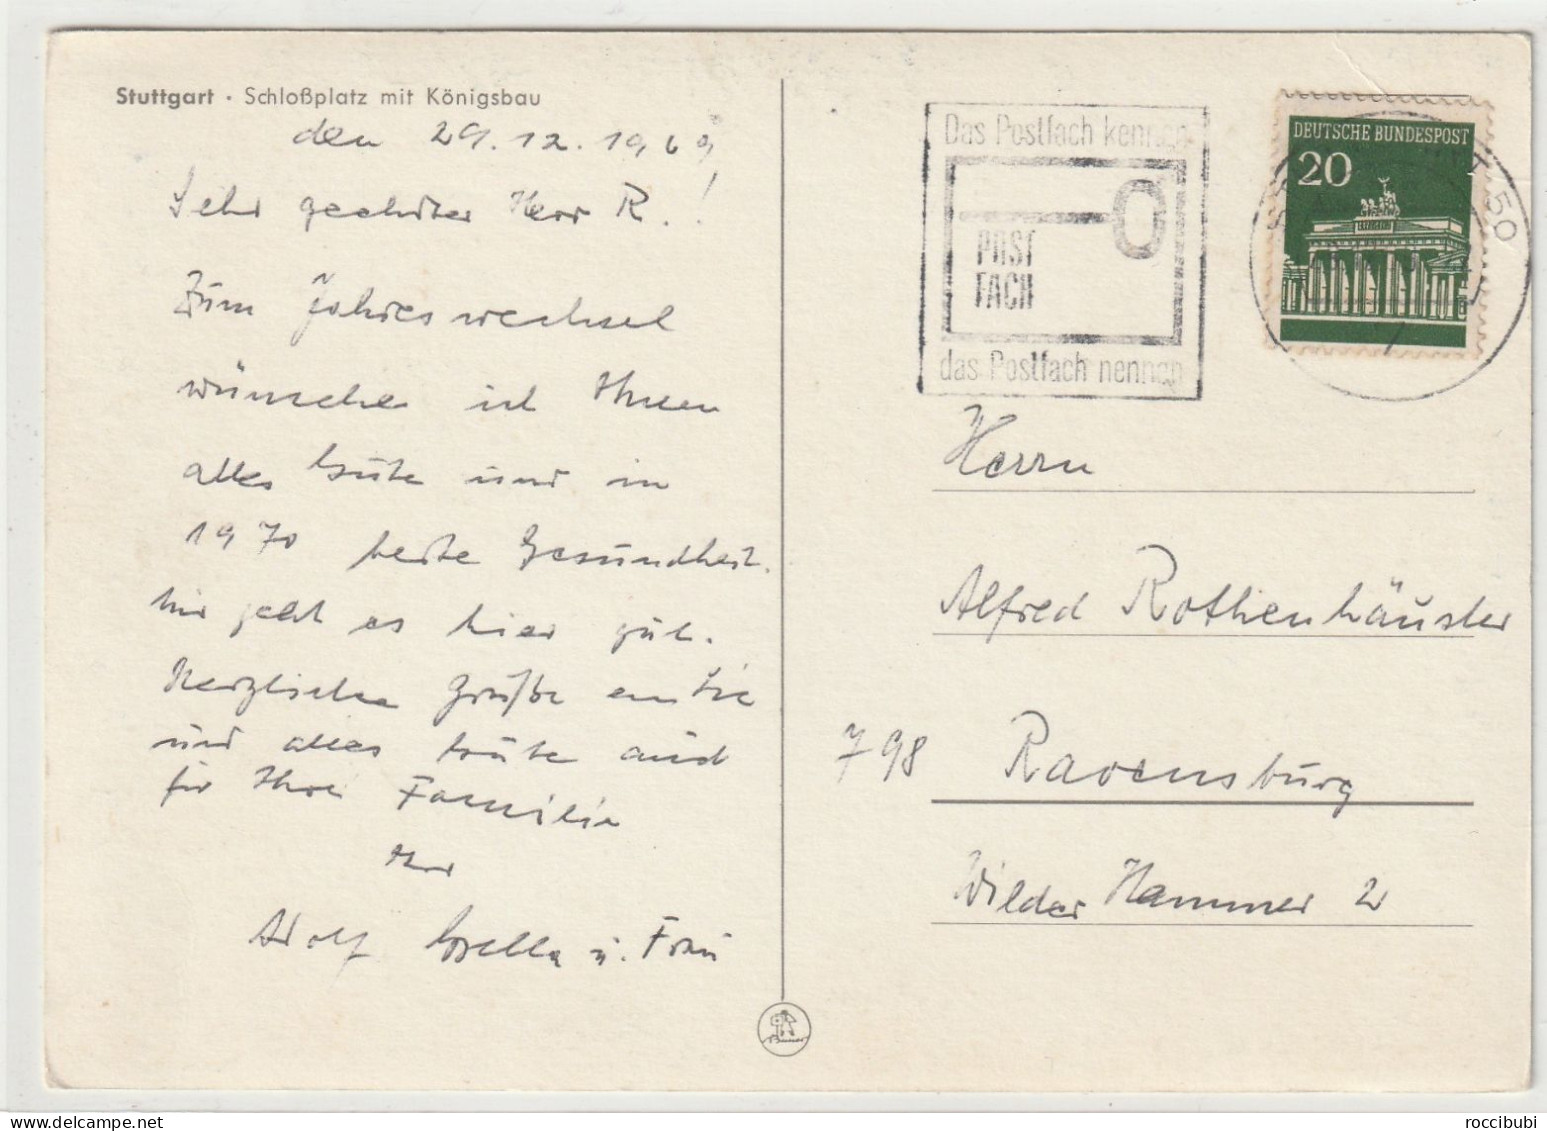 Stuttgart · Schloßplatz mit Königsbau
den 29.12.1969
Sehr geehrter Herr R.!
Zum Jahreswechsel
wünsche ich Ihnen
alles Gute und in
1970 beste Gesundheit.
Mir geht es hier gut.
Herzliche Grüße an Sie
und alles Gute auch
für Ihre Familie
Ihr
Adolf u. Frau
Das Postfach kennen
POST
FACH
das Postfach nennen
DEUTSCHE BUNDESPOST
20
50
Herrn
Alfred Rothenhäusler
798 Ravensburg
Wilder Hammer 2
roccibubi